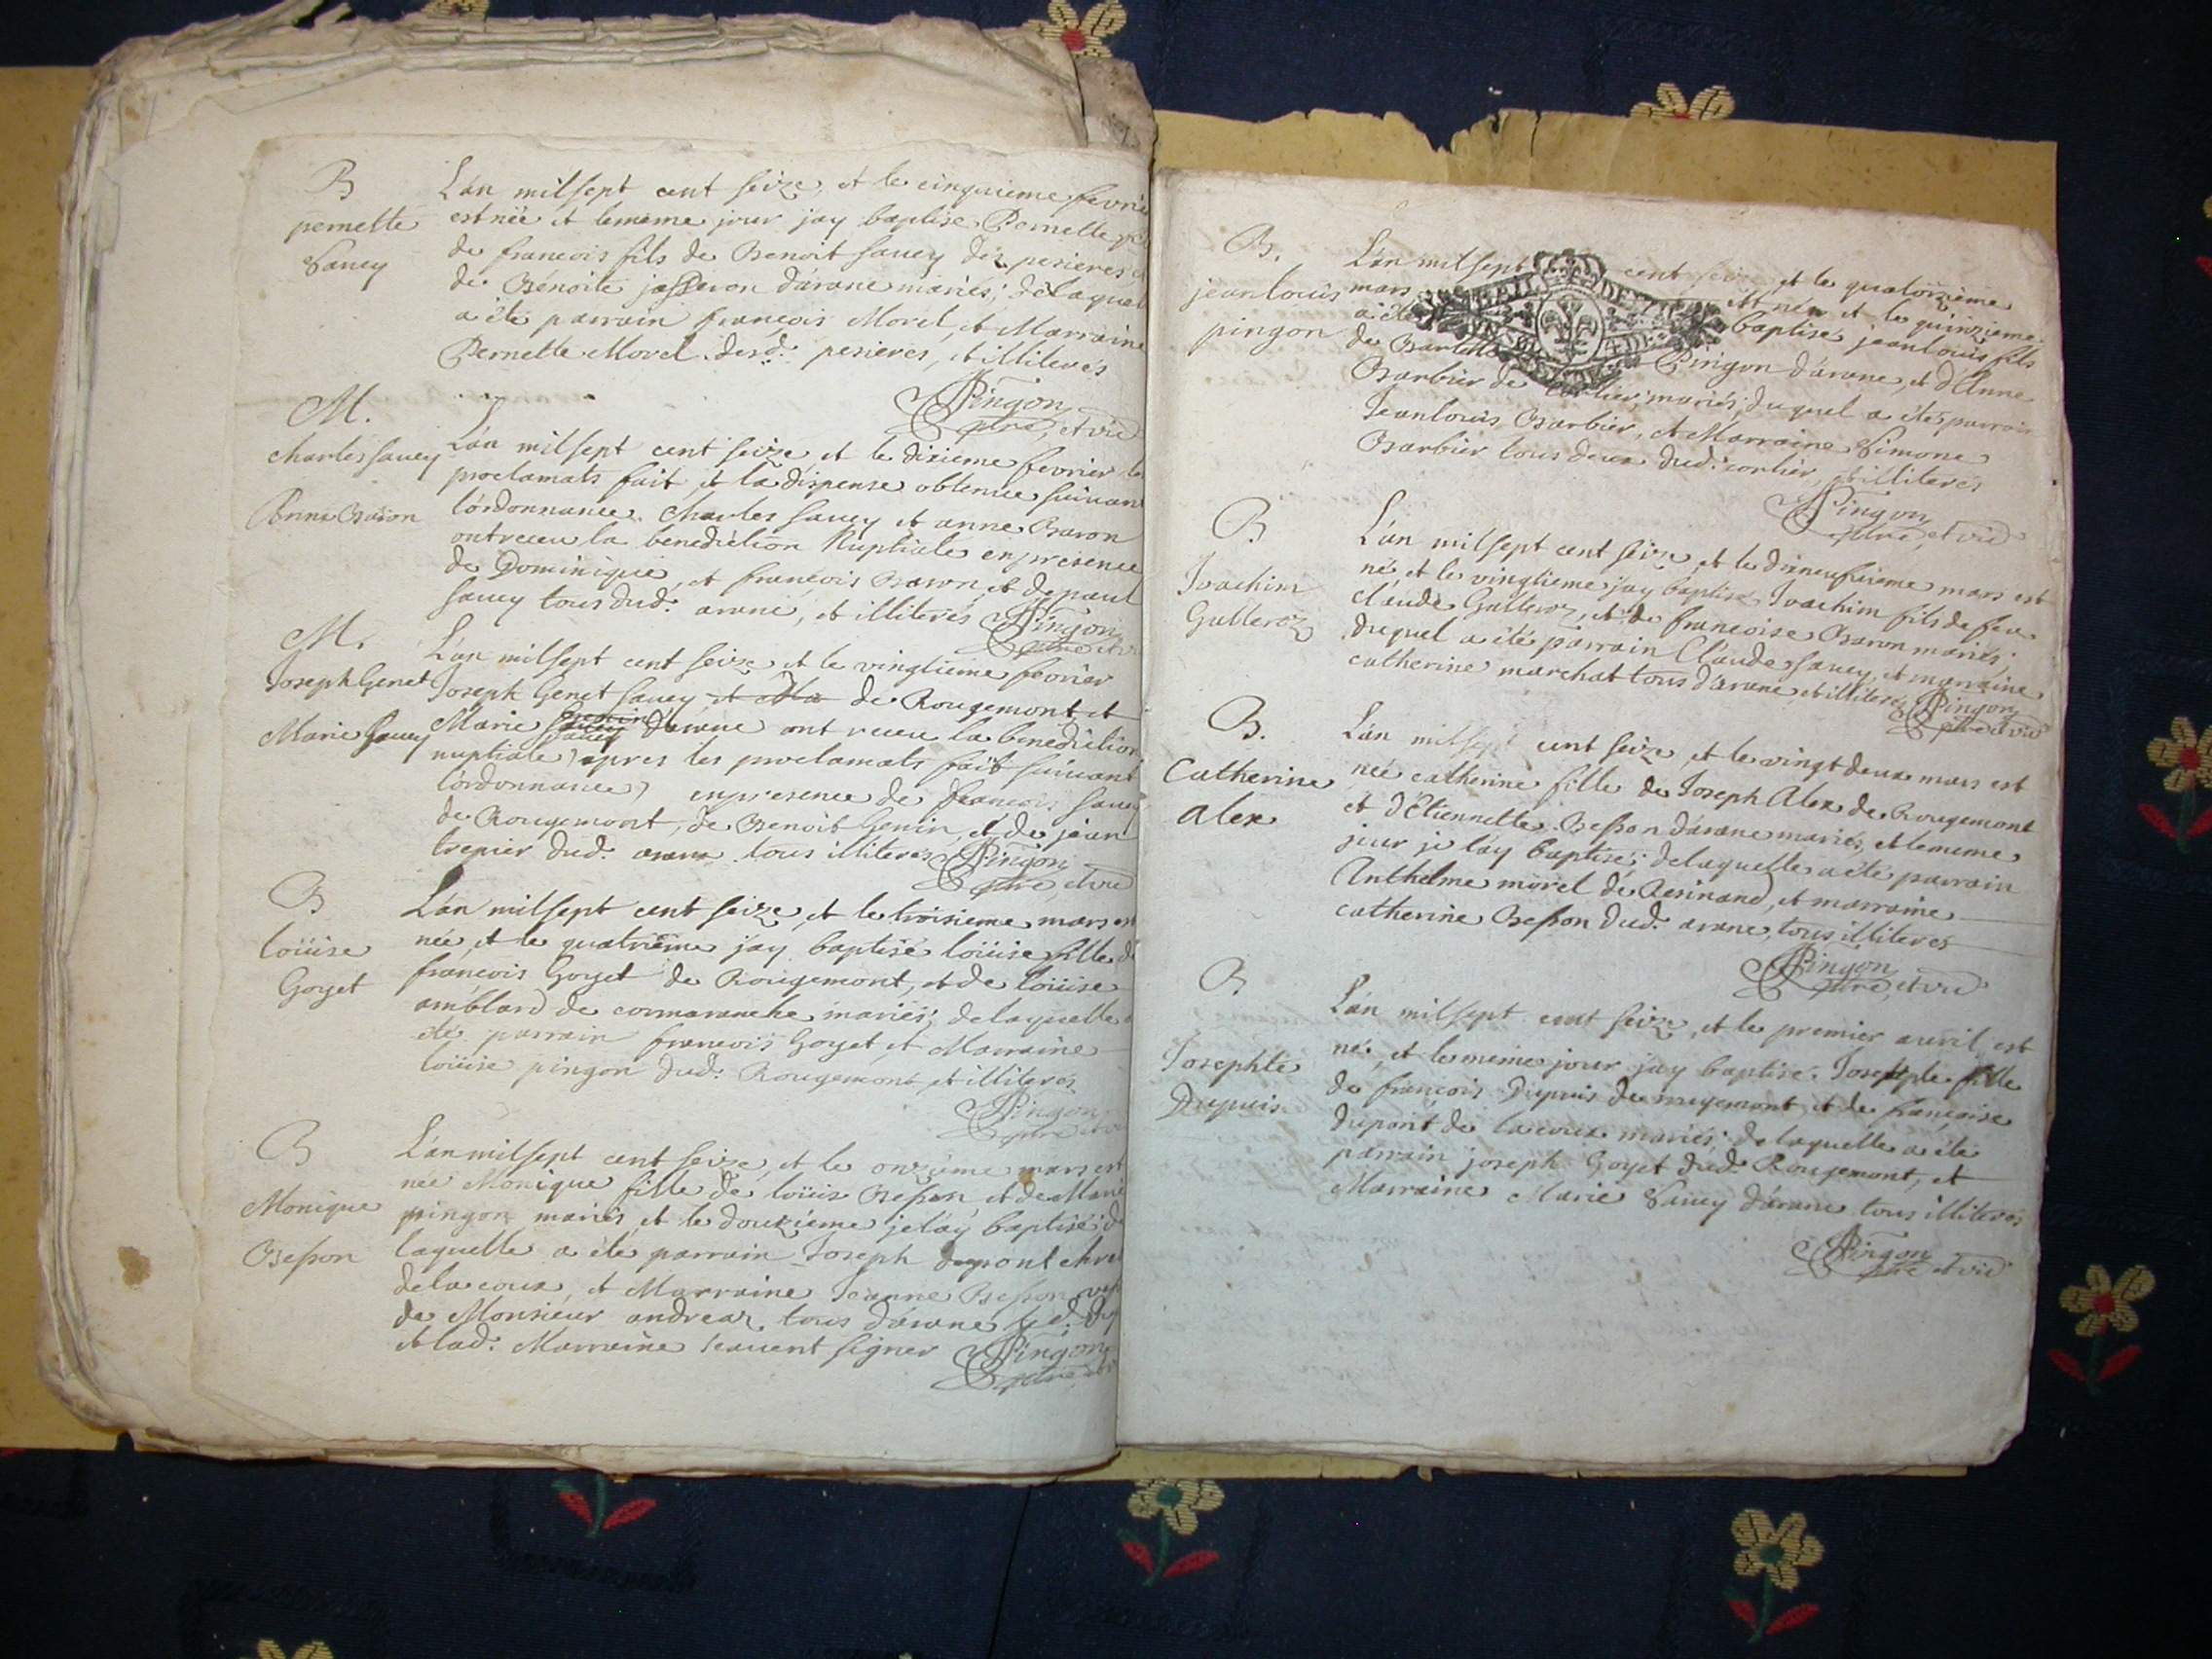 B
pernette
Savey
L'an mil sept cent seize, et le cinquieme fevrie
est née et le meme jour j'ay baptisé Pernette
de francois fils de Benoit savey des pesieres
de Benoite josseron d'arane mariés; de laquel
a été parrain francois Morel, et Marraine
Pernette Morel. desd. pesieres, et illiterés
Pingon
ptre, et vic
M.
charles savey
Anne Baron
L'an mil sept cent seize et le dixieme fevrier le
proclamats fait, et la dispense obtenue suivant
l'ordonnance. Charles savey et anne Baron
ont receu la benediction Nuptiale en presence
de Dominique, et francois Baron, et de paul
savey tous dud. arane, et illiterés Pingon
ptre et v
M.
Joseph Genet
Marie Savey
L'an mil sept cent seize, et le vingtieme fevrier
Joseph Genet savey et de Rougemont et
Marie savey d'arane ont receu la benediction
nuptiale, apres les proclamats fait suivant
l'ordonnance, en presence de francois savey
de Rougemont, de Benoit Genin, et de jean
trepier dud. arane tous illiterés Pingon
ptre, et vic
B
loüise
Goyet
L'an mil sept cent seize, et le troisieme mars est
née, et le quatrieme jay baptisé loüise fille d
francois Goyet de Rougemont, et de loüise
amblard de cormaranche mariés; de laquelle a
été parrain francois Goyet et Marraine
loüise pingon dud. Rougemont et illiterés
Pingon
ptre et v
B
Monique
Besson
L'an mil sept cent seize, et le onzieme mars est
née Monique fille de loüis Besson et de Marie
pingon mariés, et le douzieme je l'ay baptisé; de
laquelle a été parrain Joseph dupont
de lacoux, et Marraine Jeanne Besson
de Monsieur andrea, tous d'arane led.
et lad. Marraine scavent signer Pingon
ptre, et v
B.
jean loüis
pingon
L'an mil sept cent seize, et le quatorzieme
mars est né et le quinzieme
a été baptisé jean louis fils
de Pingon d'arane, et d'Anne
Barbier de corlier, mariés; duquel a été parrain
Jean louis Barbier, et Marraine Simone
Barbier tous deux dud. corlier, et illiterés
Pingon
ptre, et vic
B
Joachim
Gulleroz
L'an mil sept cent seize, et le dixneufvieme mars est
né et le vingtieme jay baptisé Joachim fils de feu
claude Gulleroz, et de francoise Baron mariés;
duquel a été parrain Claude savey, et marraine
catherine marchat tous d'arane, et illiterés Pingon
ptre et vic
B.
Catherine
alex
L'an mil sept cent seize, et le vingt deux mars est
née catherine fille de Joseph Alex de Rougemont
et d'Etiennette Besson d'arane mariés, et le meme
jour je l'ay baptisé; de laquelle a été parrain
Anthelme morel de Resinand, et marraine
catherine Besson dud. arane, tous illiterés
Pingon
ptre, et vic
B
Josephte
Dupuis
L'an mil sept cent seize, et le premier avril est
né, et le meme jour jay baptisé. Josephte fille
de francois Dupuis de rougemont et de francoise
dupont de lacoux mariés; de laquelle a été
parrain joseph Goyet dud. Rougemont, et
Marraine Marie Savey d'arane tous illiterés
Pingon
ptre et vic